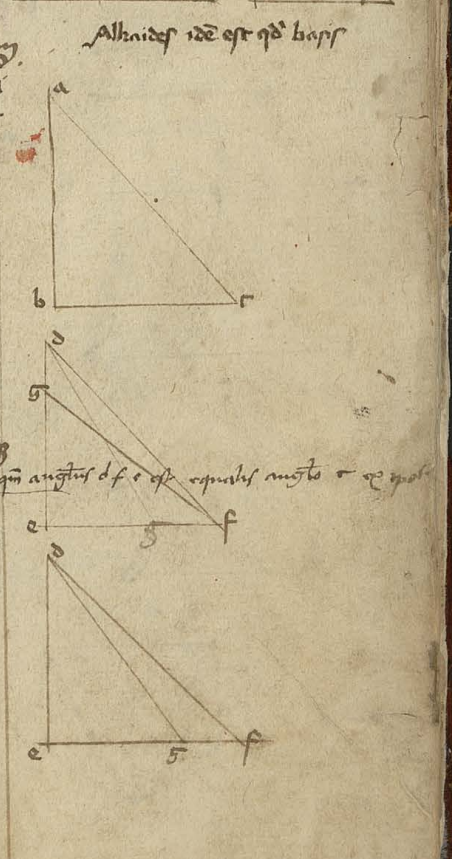 Alkaides idē est qd̄ basis
a
b c
d
g
qm̄ angl̄us d f e est equalis angl̄o c ex ipot
e g f
d
e g f